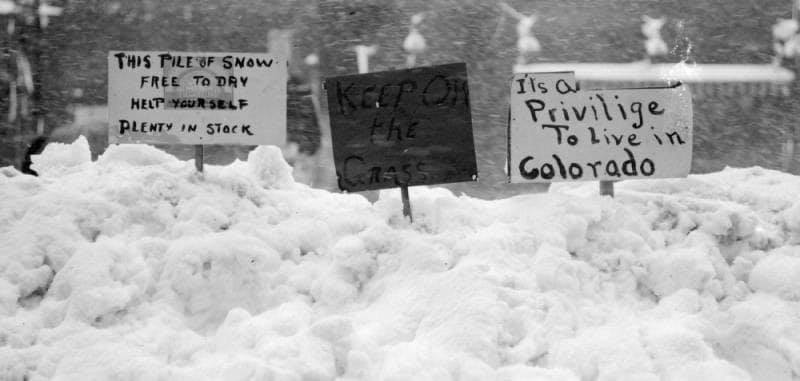 THIS PILE OF SNOW
FREE TO DAY
HELP YOURSELF
PLENTY IN STOCK
KEEP OFF
the
GRASS
It's a
Privilige
To Live in
Colorado